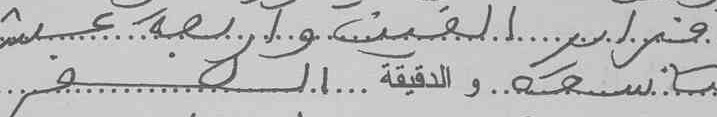 فبراير الفين و اربعة عشر
التاسعة و الدقيقة الصفر